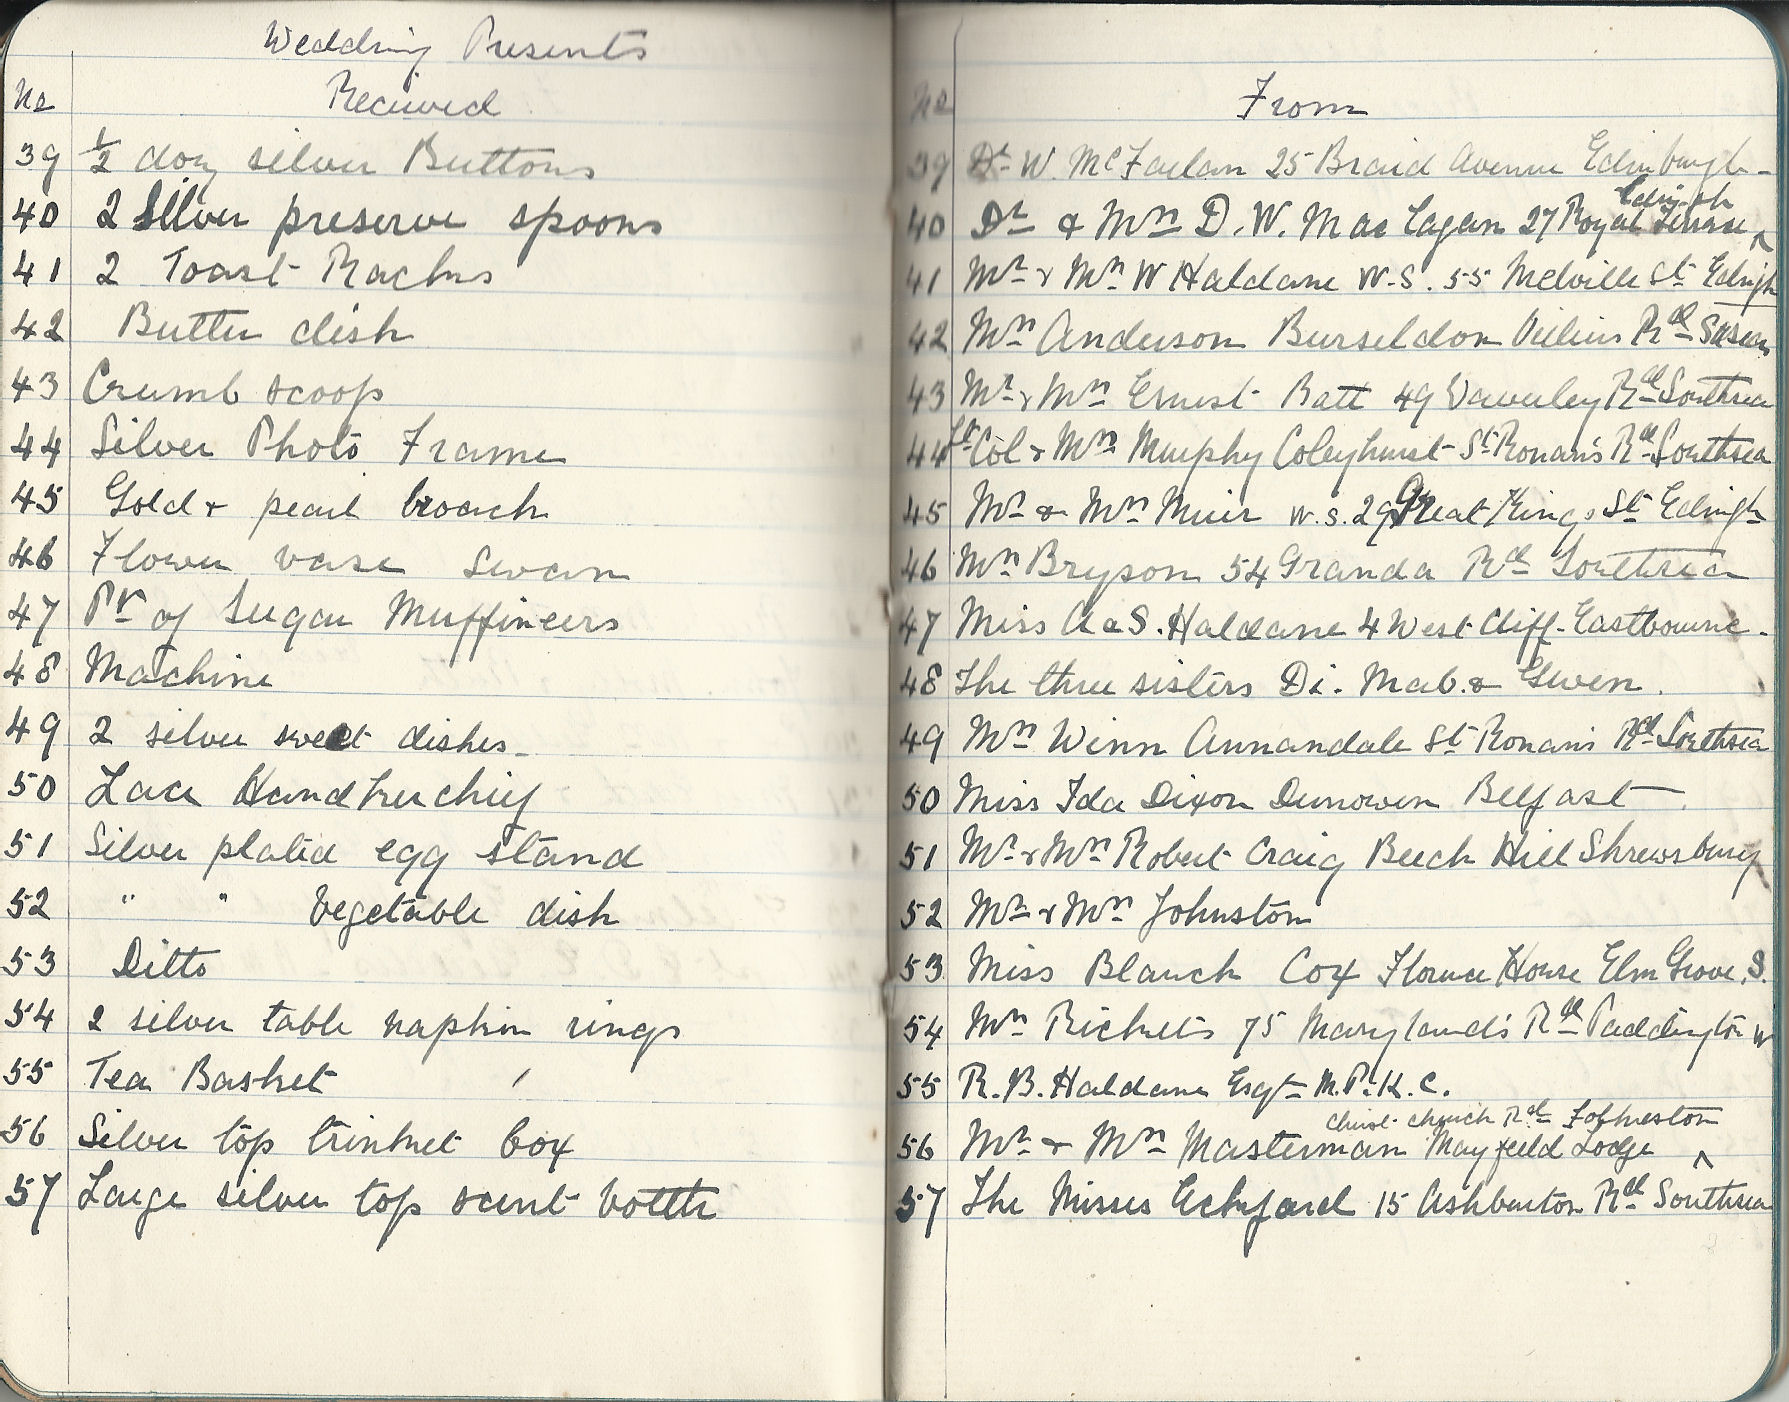 Wedding Presents
No Received
39 ½ doz silver Buttons
40 2 Silver preserve spoons
41 2 Toast Racks
42 Butter dish
43 Crumb scoop
44 Silver Photo Frame
45 Gold & pearl broach
46 Flower vase Swan
47 Pr of Sugar Muffineers
48 Machine
49 2 silver sweet dishes
50 Lace Handkerchief
51 Silver plated egg stand
52 " " Vegetable dish
53 Ditto
54 2 silver table napkin rings
55 Tea Basket
56 Silver top trinket box
57 Large silver top scent bottle
No From
39 Dr W. McFarlan 25 Braid Avenue Edinburgh
Edingh
40 Dr & Mrs D. W. MacLagan 27 Royal Terrace ^
41 Mr & Mrs W Haldane W.S. 55 Melville St Edingh
42 Mrs Anderson Burseldon Rd
43 Mr & Mrs Ernest Batt 49 Waverley Rd Southsea
44 Lt Col & Mrs Murphy Coleyhurst St Ronan's Rd Southsea
45 Mr & Mrs Muir W.S. 29 Great King St Edingh
46 Mrs Bryson 54 Granda Rd Southsea
47 Miss A & S. Haldane 4 West Cliff Eastbourne.
48 The three sisters Di. Mab. & Gwen.
49 Mrs Winn Annandale St Ronan's Rd Southsea
50 Miss Ida Dixon Dunowen Belfast
51 Mr & Mrs Robert Craig Beech Hill Shrewsbury
52 Mr & Mrs Johnston
53 Miss Blanch Cox Florence House Elm Grove. S.
54 Mrs Rickets 75 Maryland's Rd Paddington W
55 R. B. Haldane Esqr M.P. K.C.
Christ church Rd Folkeston
56 Mr & Mrs Masterman Mayfield Lodge ^
57 The Misses Eckford 15 Ashburton Rd Southsea